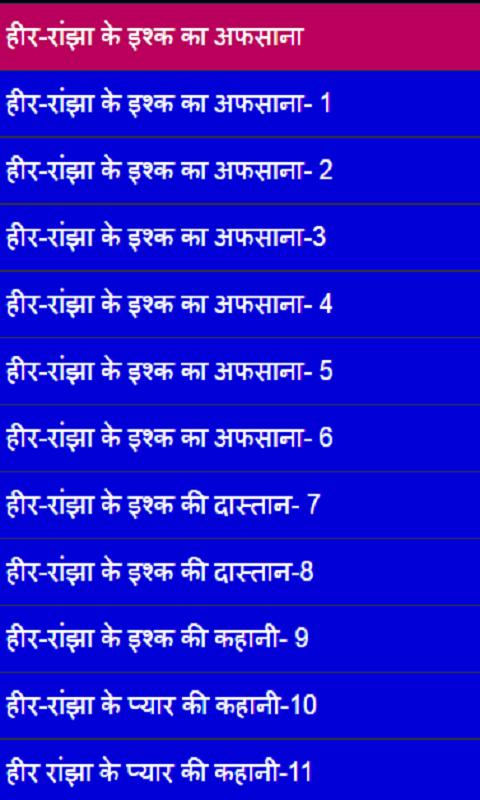 हीर-रांझा के इश्क का अफसाना
हीर-रांझा के इश्क का अफसाना- 1
हीर-रांझा के इश्क का अफसाना- 2
हीर-रांझा के इश्क का अफसाना-3
हीर-रांझा के इश्क का अफसाना- 4
हीर-रांझा के इश्क का अफसाना- 5
हीर-रांझा के इश्क का अफसाना- 6
हीर-रांझा के इश्क की दास्तान- 7
हीर-रांझा के इश्क की दास्तान-8
हीर-रांझा के इश्क की कहानी- 9
हीर-रांझा के प्यार की कहानी-10
हीर रांझा के प्यार की कहानी-11